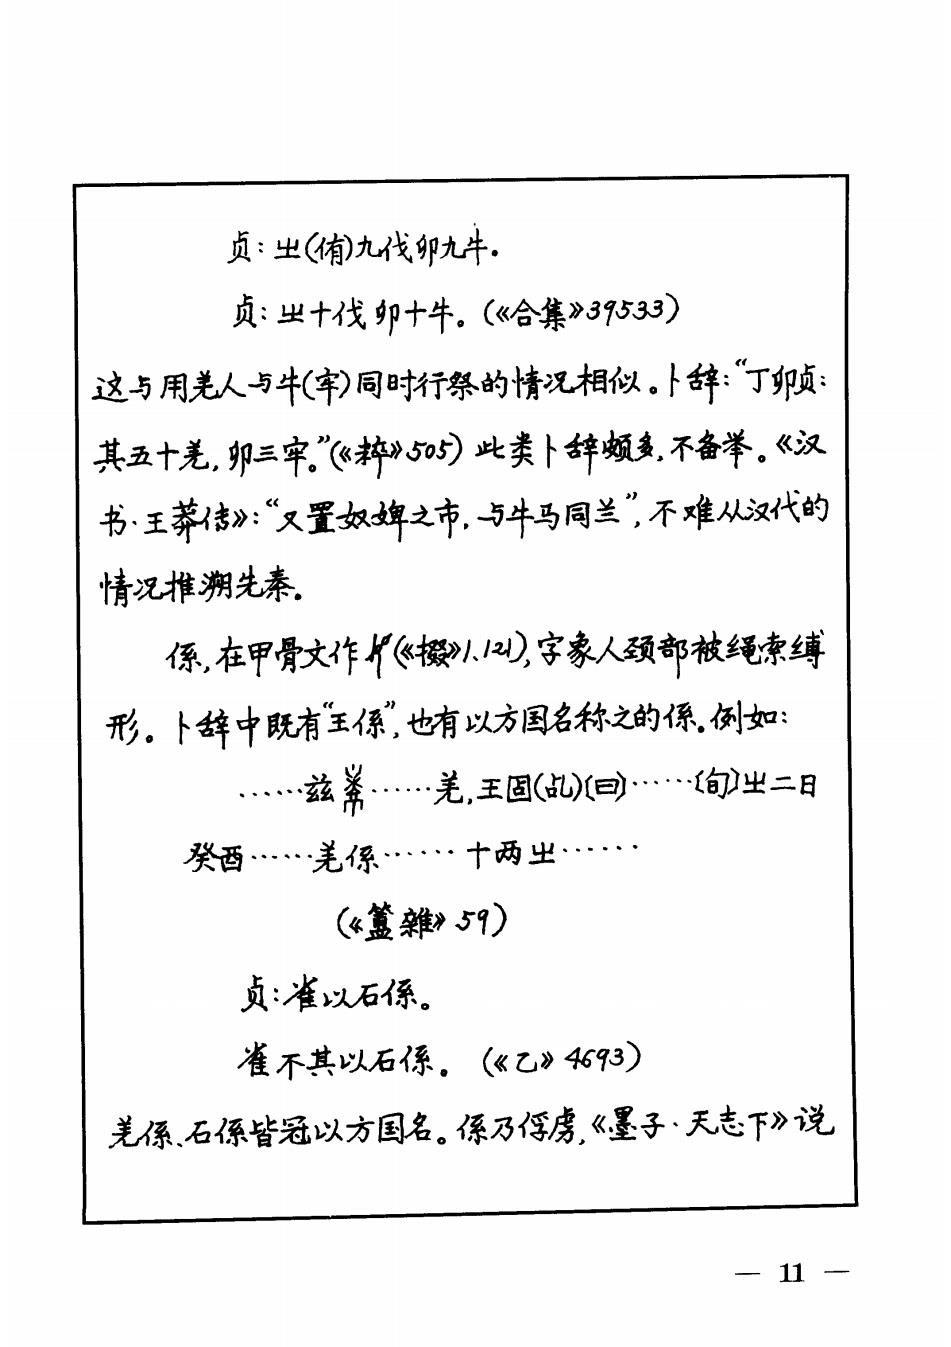 贞：㞢(侑)九伐卯九牛。
贞：㞢十伐卯十牛。(《合集》39533)
这与用羌人与牛(牢)同时行祭的情况相似。卜辞：“丁卯贞：
其五十羌，卯三牢。”(《粹》505) 此类卜辞颇多，不备举。《汉
书·王莽传》：“又置奴婢之市，与牛马同兰”，不难从汉代的
情况推溯先秦。
係，在甲骨文作(《掇》1.121)，字象人颈部被绳索缚
形。卜辞中既有“王係”，也有以方国名称之的係。例如：
……兹……羌，王固(占)〔曰〕……〔旬〕㞢二日
癸酉……羌係……十两㞢……
(《簠雜》59)
贞：雀以石係。
雀不其以石係。(《乙》4693)
羌係、石係皆冠以方国名。係乃俘虏，《墨子·天志下》说
— 11 —